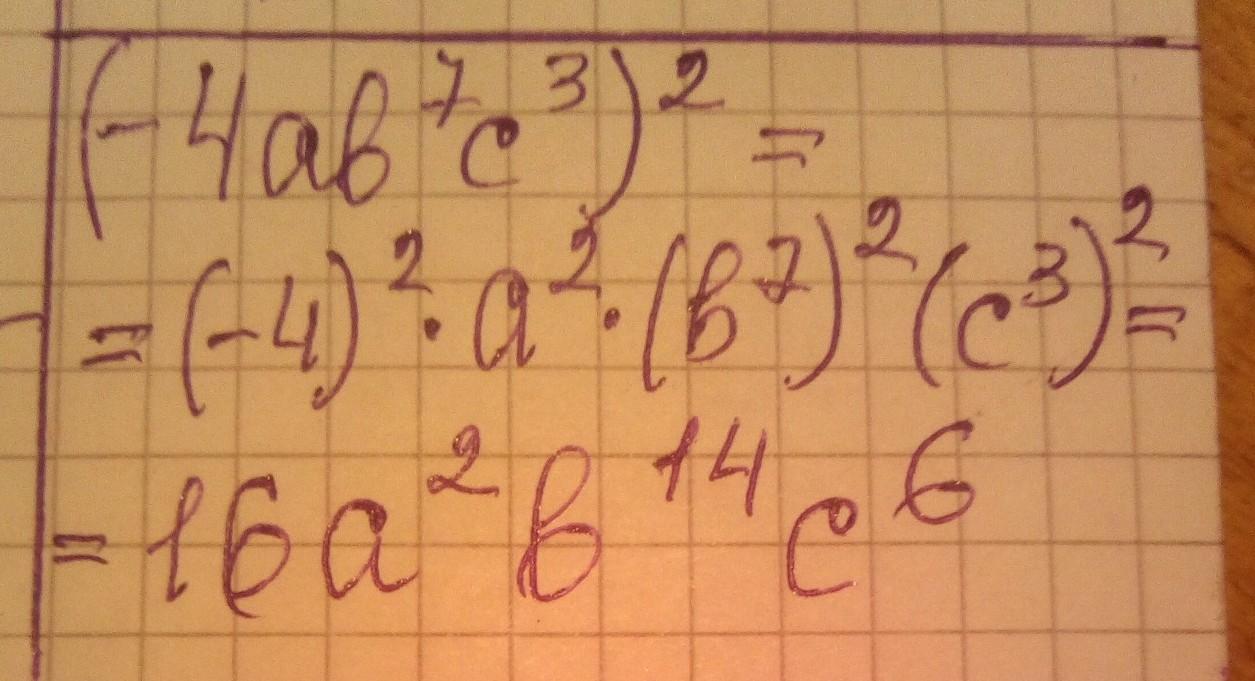 (-4ab⁷c³)² =
= (-4)² · a² · (b⁷)² (c³)² =
= 16a² b¹⁴ c⁶